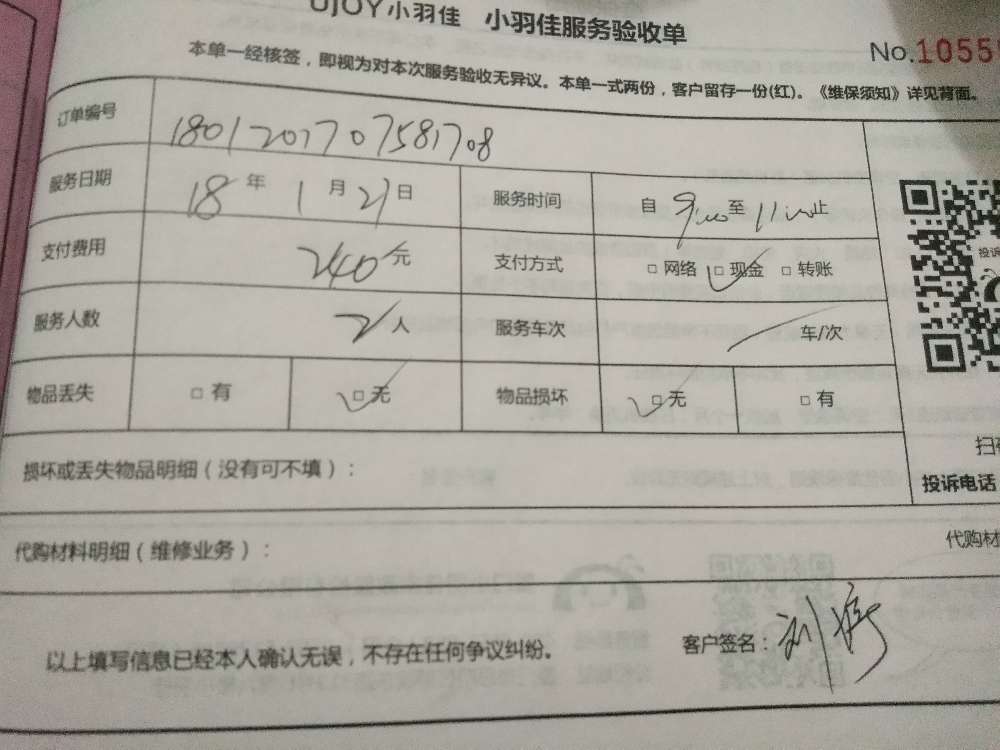 UJOY小羽佳 小羽佳服务验收单
No.1055
本单一经核签，即视为对本次服务验收无异议。本单一式两份，客户留存一份(红)。《维保须知》详见背面。
订单编号 1801201707581708
服务日期 18年1月21日 服务时间 自9:00至11:00止
支付费用 240元 支付方式 □网络 □现金 □转账
服务人数 2人 服务车次 车/次
物品丢失 □有 □无 物品损坏 □无 □有
损坏或丢失物品明细（没有可不填）：
投诉电话
代购材料明细（维修业务）： 代购材
以上填写信息已经本人确认无误，不存在任何争议纠纷。 客户签名：刘婷